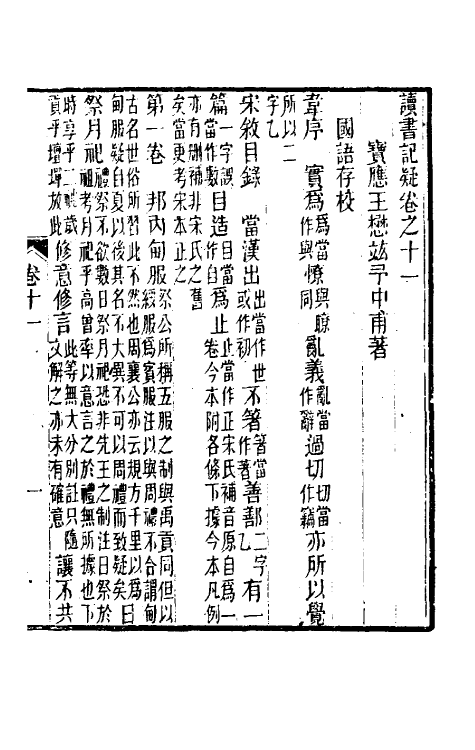 讀書記疑卷之十一
寶應王懋竑予中甫著
國語存校
韋序　實爲爲當作與憭與瞭同亂義亂當作辭過切切當作竊亦所以覺
所以二字乙
宋敘目錄　當漢出出當作世或作初不著著當作著善鄯二字乙有一
篇一字誤當作數目造目當作自爲止止當作正宋氏補音原自爲一卷今本附各條下據今本凡例
亦有刪補非宋氏之舊矣當更考宋本正之
第一卷　邦內甸服祭公所稱五服之制與禹貢同但以綏服爲賓服注以與周禮不合謂甸
古名世俗所習此不然也周襄公亦云規方千里以爲甸服疑自夏以後其名不大異不可以周禮而致疑矣日
祭月祀禮祭不欲數日祭月祀恐非先王之制注日祭於祖考月祀乎高曾率以意言之於禮無所據也下
時享乎二祧歲貢乎壇墠放此修意修言此等無大分別註只隨文解之亦未有確意讓不共
卷十一
一